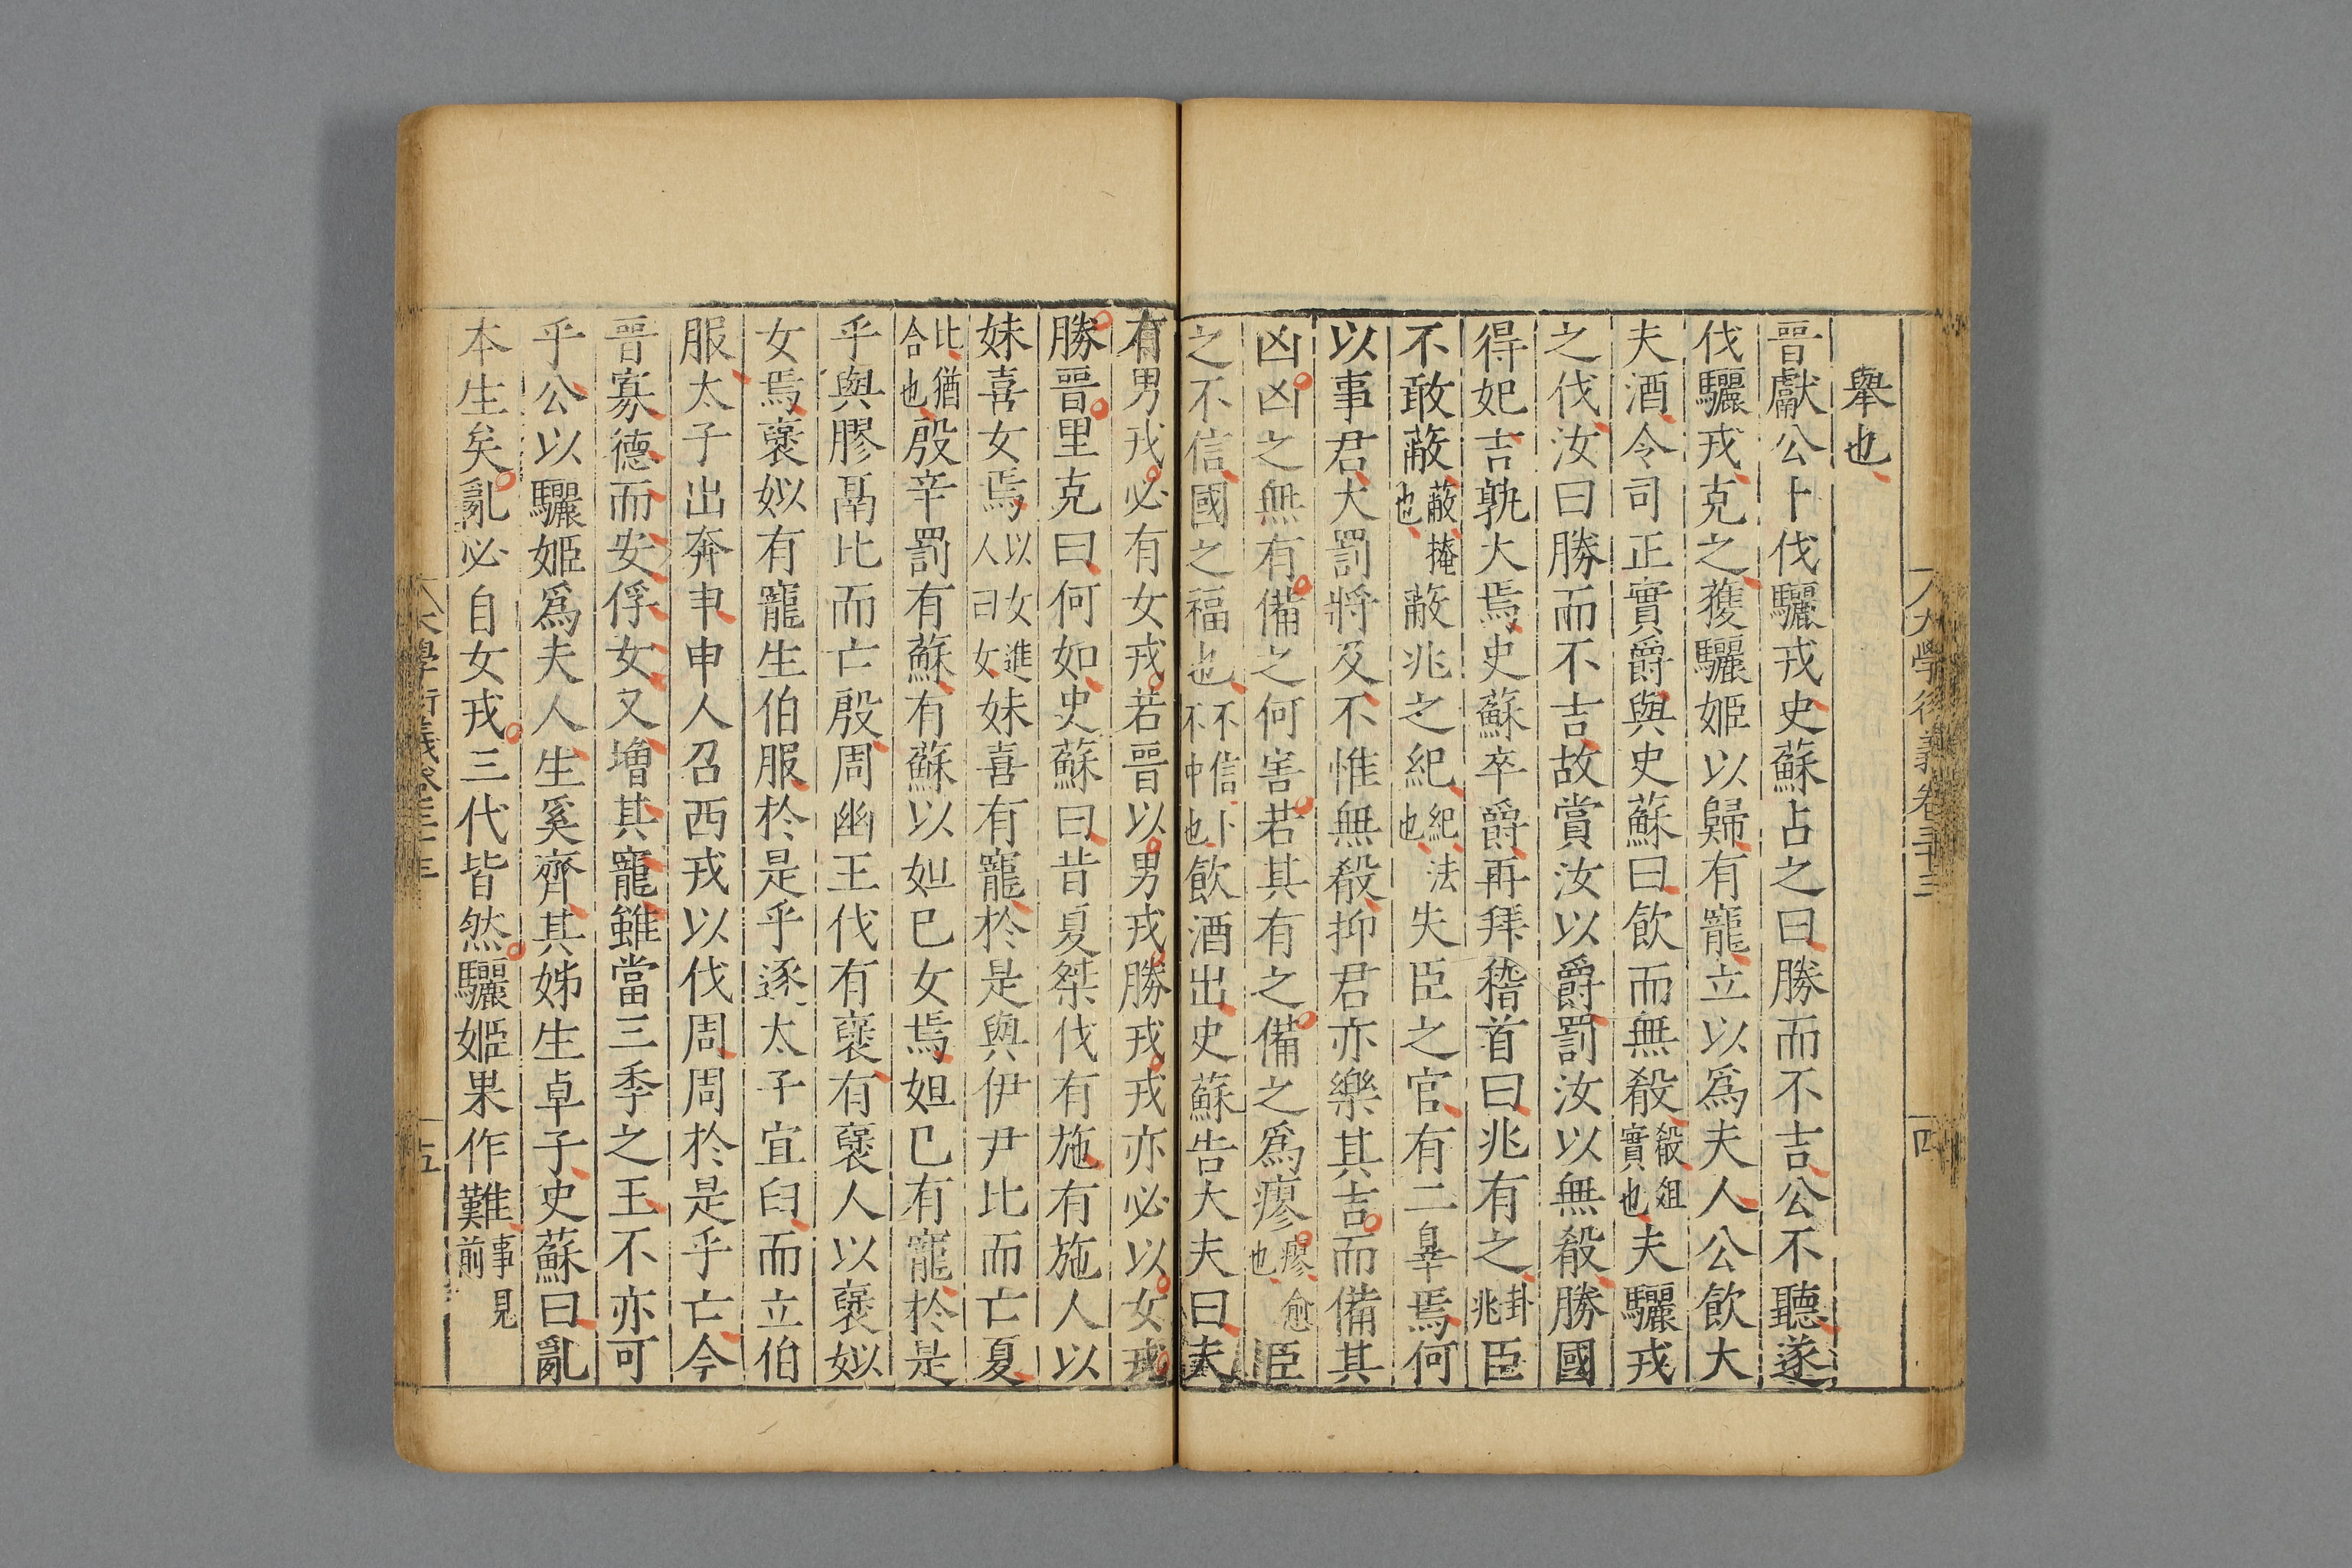 舉也
晉獻公卜伐驪戎史蘇占之曰勝而不吉公不聽遂
伐驪戎克之獲驪姬以歸有寵立以爲夫人公飲大
夫酒令司正實爵與史蘇曰飲而無殽殽俎實也夫驪戎
之伐汝曰勝而不吉故賞汝以爵罰汝以無殽勝國
得妃吉孰大焉史蘇卒爵再拜稽首曰兆有之卦兆臣
不敢蔽蔽掩也蔽兆之紀紀法也失臣之官有二辠焉何
以事君大罰將及不惟無殽抑君亦樂其吉而備其
凶凶之無有備之何害若其有之備之爲瘳瘳愈也臣
之不信國之福也不信卜不中也飲酒出史蘇告大夫曰夫
有男戎必有女戎若晉以男戎勝戎戎亦必以女戎
勝晉里克曰何如史蘇曰昔夏桀伐有施有施人以
妺喜女焉以女進人曰女妺喜有寵於是與伊尹比而亡夏
比猶合也殷辛罰有蘇有蘇以妲已女焉妲已有寵於是
乎與膠鬲比而亡殷周幽王伐有褒有襃人以襃姒
女焉襃姒有寵生伯服於是乎逐太子宜臼而立伯
服太子出奔申申人召西戎以伐周周於是乎亡今
晉寡德而安俘女又增其寵雖當三季之王不亦可
乎公以驪姬爲夫人生奚齊其姊生卓子史蘇曰亂
本生矣亂必自女戎三代皆然驪姬果作難事見前